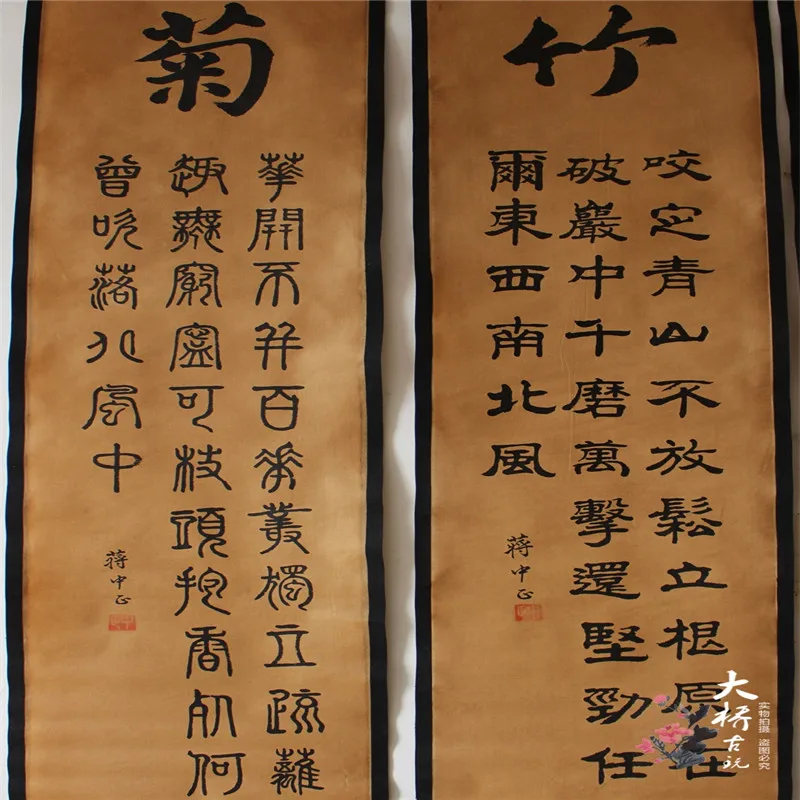 竹
咬定青山不放鬆立根原在
破巖中千磨萬擊還堅勁任
爾東西南北風
蔣中正
菊
華開不并百花叢獨立疏籬
趣無窮寧可枝頭抱香死何
曾吹落北風中
蔣中正
大桥古玩
实物拍摄
盗图必究